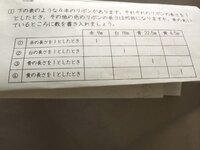 (1) 下の表のような4本のリボンがあります。それぞれのリボンの長さを1
としたとき、その他の色のリボンの長さは何倍になりますか。
ているところに数を書き入れましょう。
赤 9m 白 18m 青 22.5m 黄 4.5m
① 赤の長さを1としたとき 1
② 白の長さを1としたとき 1
③ 青の長さを1としたとき 1
④ 黄の長さを1としたとき 1